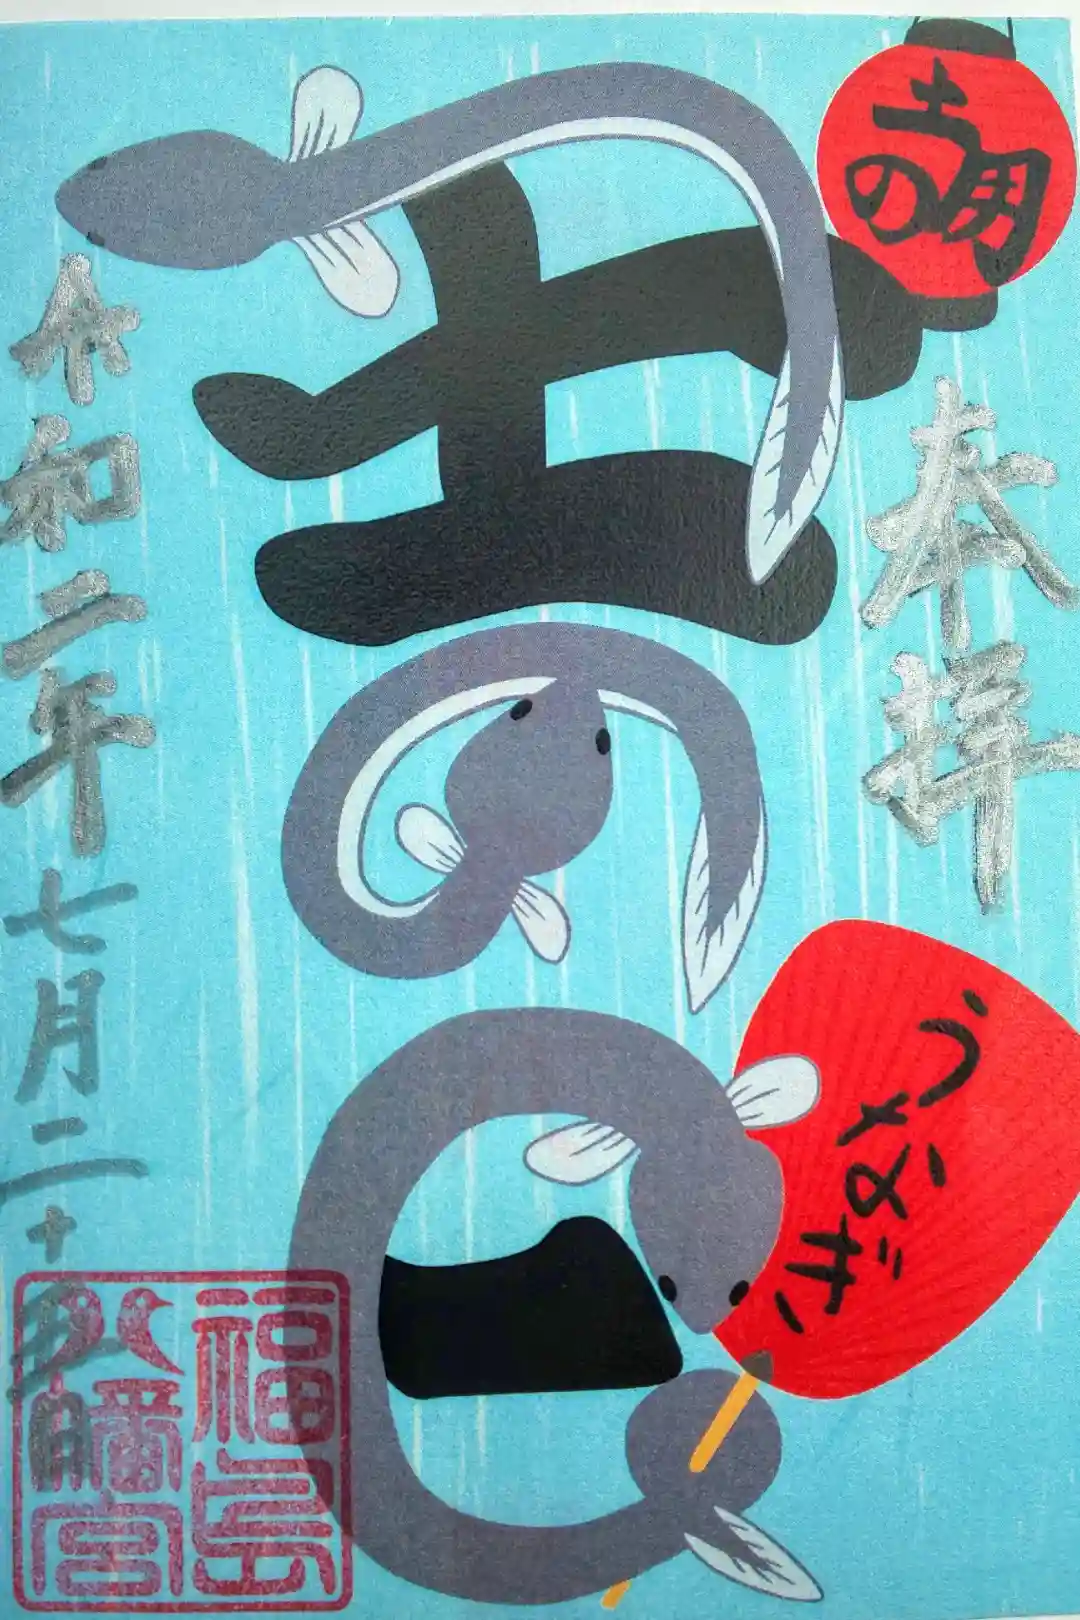 土用の
奉拝
うなぎ
丑の日
令和二年七月二十
福島
八幡宮